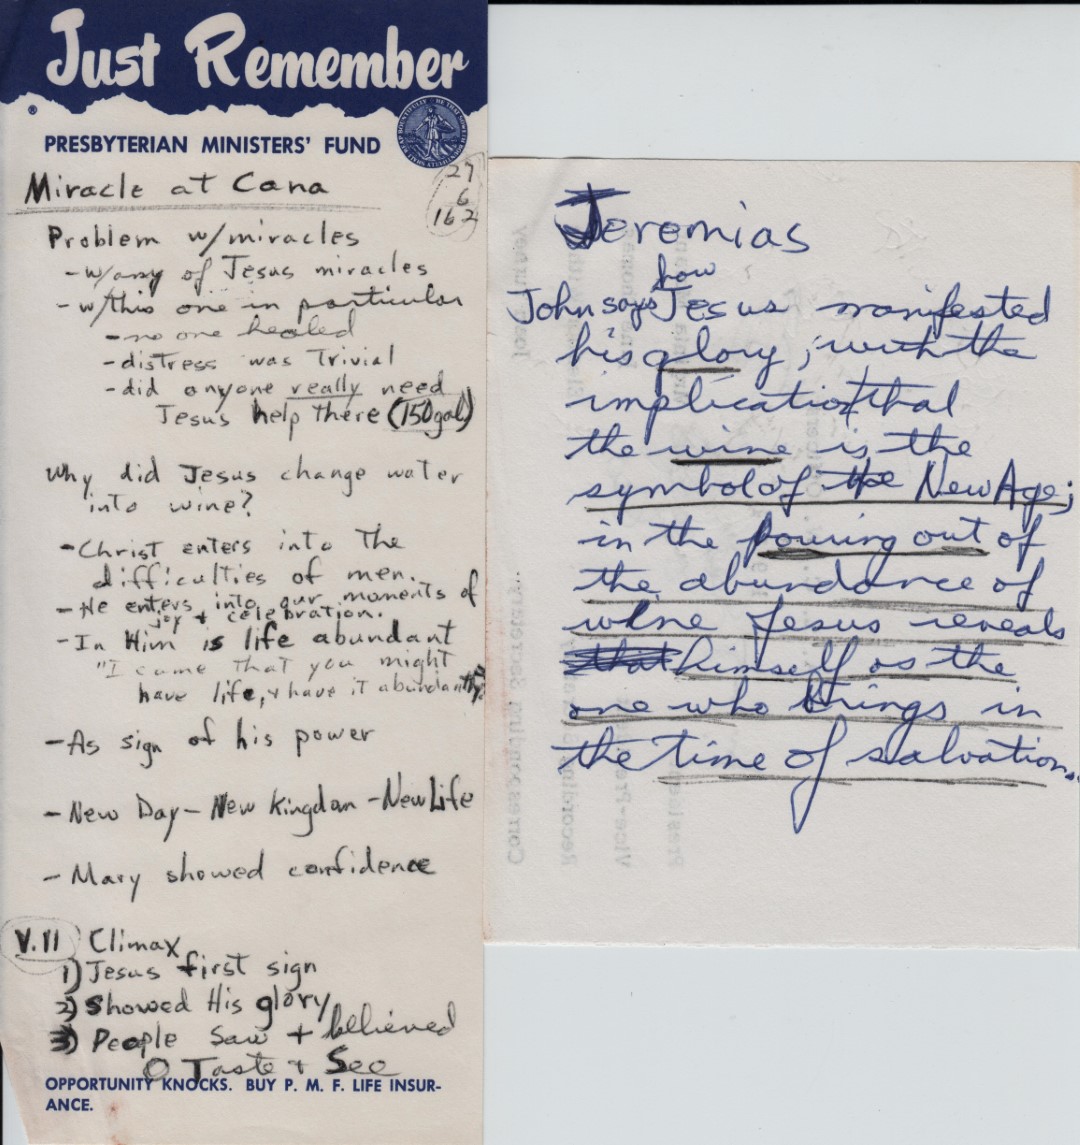 Just Remember
®
PRESBYTERIAN MINISTERS' FUND
Miracle at Cana
27
6
162
Problem w/miracles
- w/any of Jesus miracles
- w/this one in particular
- no one healed
- distress was Trivial
- did anyone really need
Jesus help there (150gal)
Why did Jesus change water
into wine?
- Christ enters into the
difficulties of men.
- He enters into our moments of
joy + celebration.
- In Him is life abundant
"I came that you might
have life, + have it abundantly."
- As sign of his power
- New Day - New Kingdom - New Life
- Mary showed confidence
V.11 Climax
1) Jesus first sign
2) Showed His glory
3) People Saw + believed
O Taste + See
OPPORTUNITY KNOCKS. BUY P. M. F. LIFE INSUR-
ANCE.
Jeremias
how
John says Jesus manifested
his glory; with the
implication that
the wine is the
symbol of the New Age;
in the pouring out of
the abundance of
wine Jesus reveals
himself as the
one who brings in
the time of salvation.